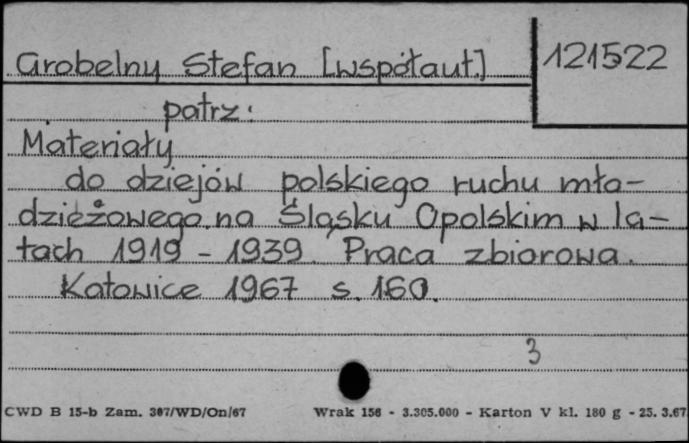 Grobelny Stefan [współaut.] 121522
patrz:
Materiały
do dziejów polskiego ruchu mło-
dzieżowego na Śląsku Opolskim w la-
tach 1919 - 1939. Praca zbiorowa.
Katowice 1967 s. 160.
3
CWD B 15-b Zam. 307/WD/On/67 Wrak 156 - 3.305.000 - Karton V kl. 180 g - 25. 3.67